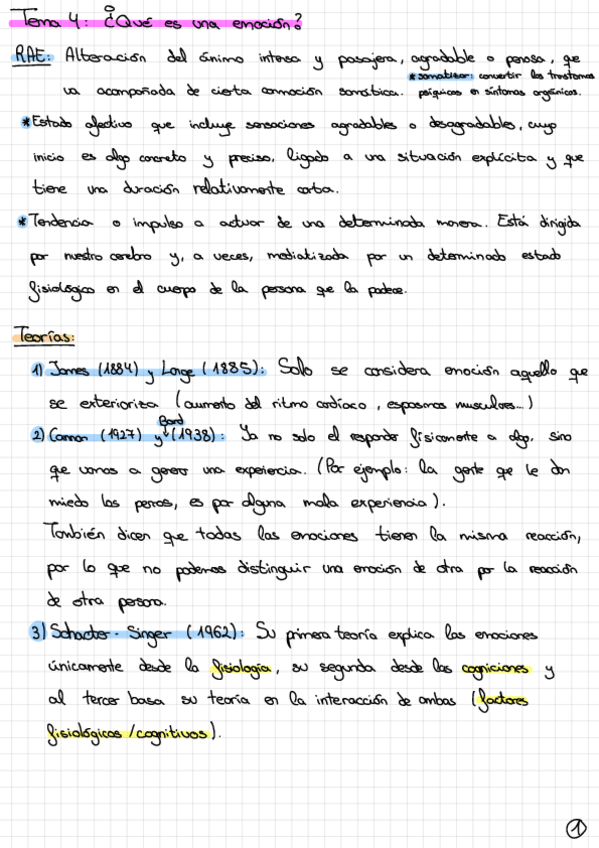 Tema 4: ¿Qué es una emoción?
RAE: Alteración del ánimo intensa y pasajera, agradable o penosa, que
va acompañada de cierta conmoción somática.
*somatizar: convertir los trastornos
psíquicos en síntomas orgánicos.
*Estado afectivo que incluye sensaciones agradables o desagradables, cuyo
inicio es algo concreto y preciso, ligado a una situación explícita y que
tiene una duración relativamente corta.
*Tendencia o impulso a actuar de una determinada manera. Está dirigida
por nuestro cerebro y, a veces, mediatizada por un determinado estado
fisiológico en el cuerpo de la persona que la padece.
Teorías:
1) James (1884) y Lange (1885): Solo se considera emoción aquello que
se exterioriza (aumento del ritmo cardíaco, espasmos musculares...)
2) Cannon (1927) y Bard (1938): Ya no solo el responder físicamente a algo, sino
que vamos a generar una experiencia. (Por ejemplo: la gente que le dan
miedo los perros, es por alguna mala experiencia).
También dicen que todas las emociones tienen la misma reacción,
por lo que no podemos distinguir una emoción de otra por la reacción
de otra persona.
3) Schachter - Singer (1962): Su primera teoría explica las emociones
únicamente desde la fisiología, su segunda desde las cogniciones y
al tercer basa su teoría en la interacción de ambas (factores
fisiológicos/cognitivos).
1